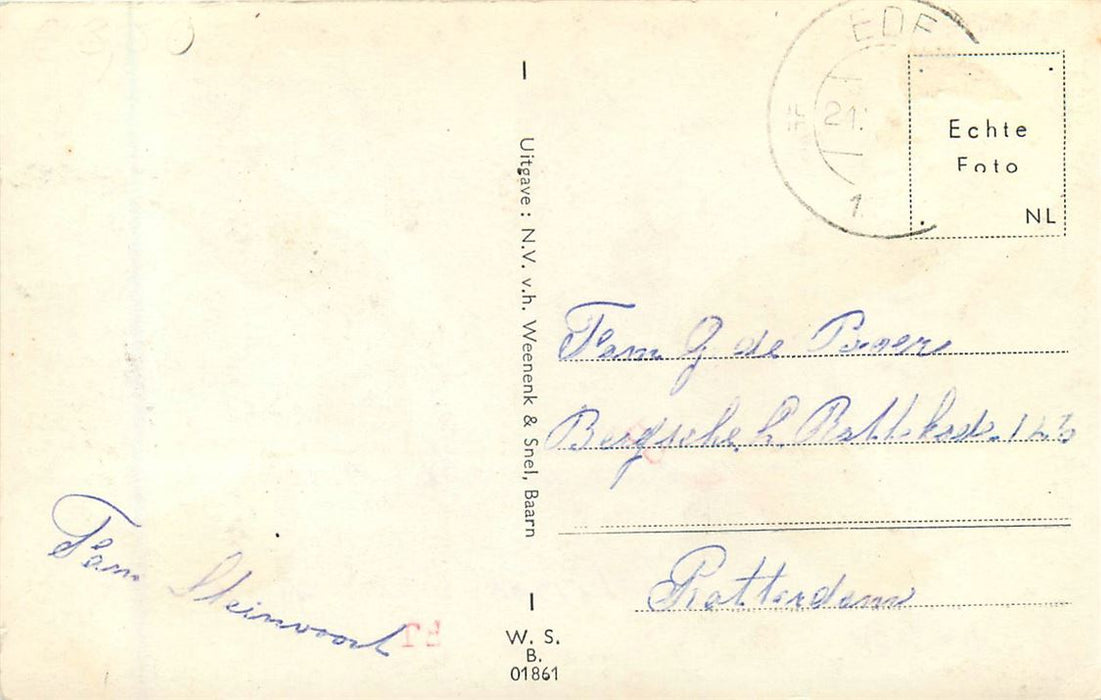 3,50
EDE
21.
1.
Echte
Foto
NL
Uitgave: N.V. v.h. Weenenk & Snel, Baarn
Fam G de Boer
Bergsche L. Rottekade 123
Rotterdam
Fam Steinvoort
W. S.
B.
01861